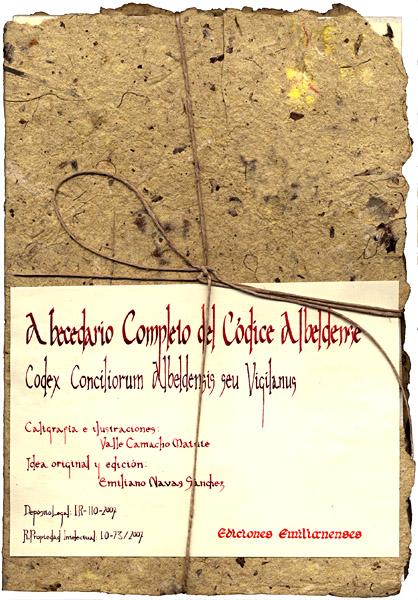 Abecedario Completo del Códice Albeldense
Codex Conciliorum Albeldensis seu Vigilanus
Caligrafía e ilustraciones:
Valle Camacho Matute
Idea original y edición:
Emiliano Navas Sánchez
Depósito Legal: LR-110-2007
R. Propiedad Intelectual: LO-73/2007
Ediciones Emilianenses